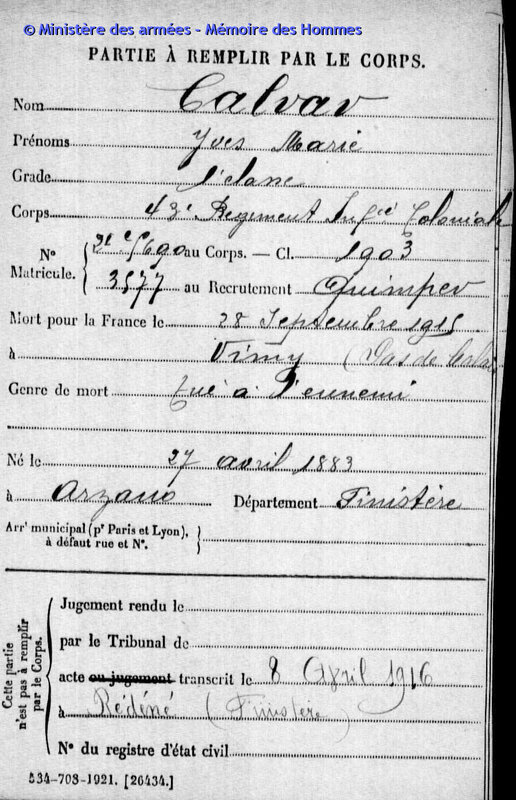 © Ministère des armées - Mémoire des Hommes
PARTIE À REMPLIR PAR LE CORPS.
Nom Calvav
Prénoms Yves Marie
Grade 2e classe
Corps 43e Régiment Infie Coloniale
N° Matricule. { 5690 au Corps. — Cl. 1903
3577 au Recrutement Quimper
Mort pour la France le 28 Septembre 1915
à Vimy (Pas de Calais
Genre de mort tué à l'ennemi
Né le 27 avril 1883
à Arzano Département Finistère
Arrt municipal (pr Paris et Lyon),
à défaut rue et N°.
Cette partie n'est pas à remplir par le Corps.
Jugement rendu le
par le Tribunal de
acte ou jugement transcrit le 8 Avril 1916
à Rédéné (Finistère)
N° du registre d'état civil
534-708-1921. [26434.]